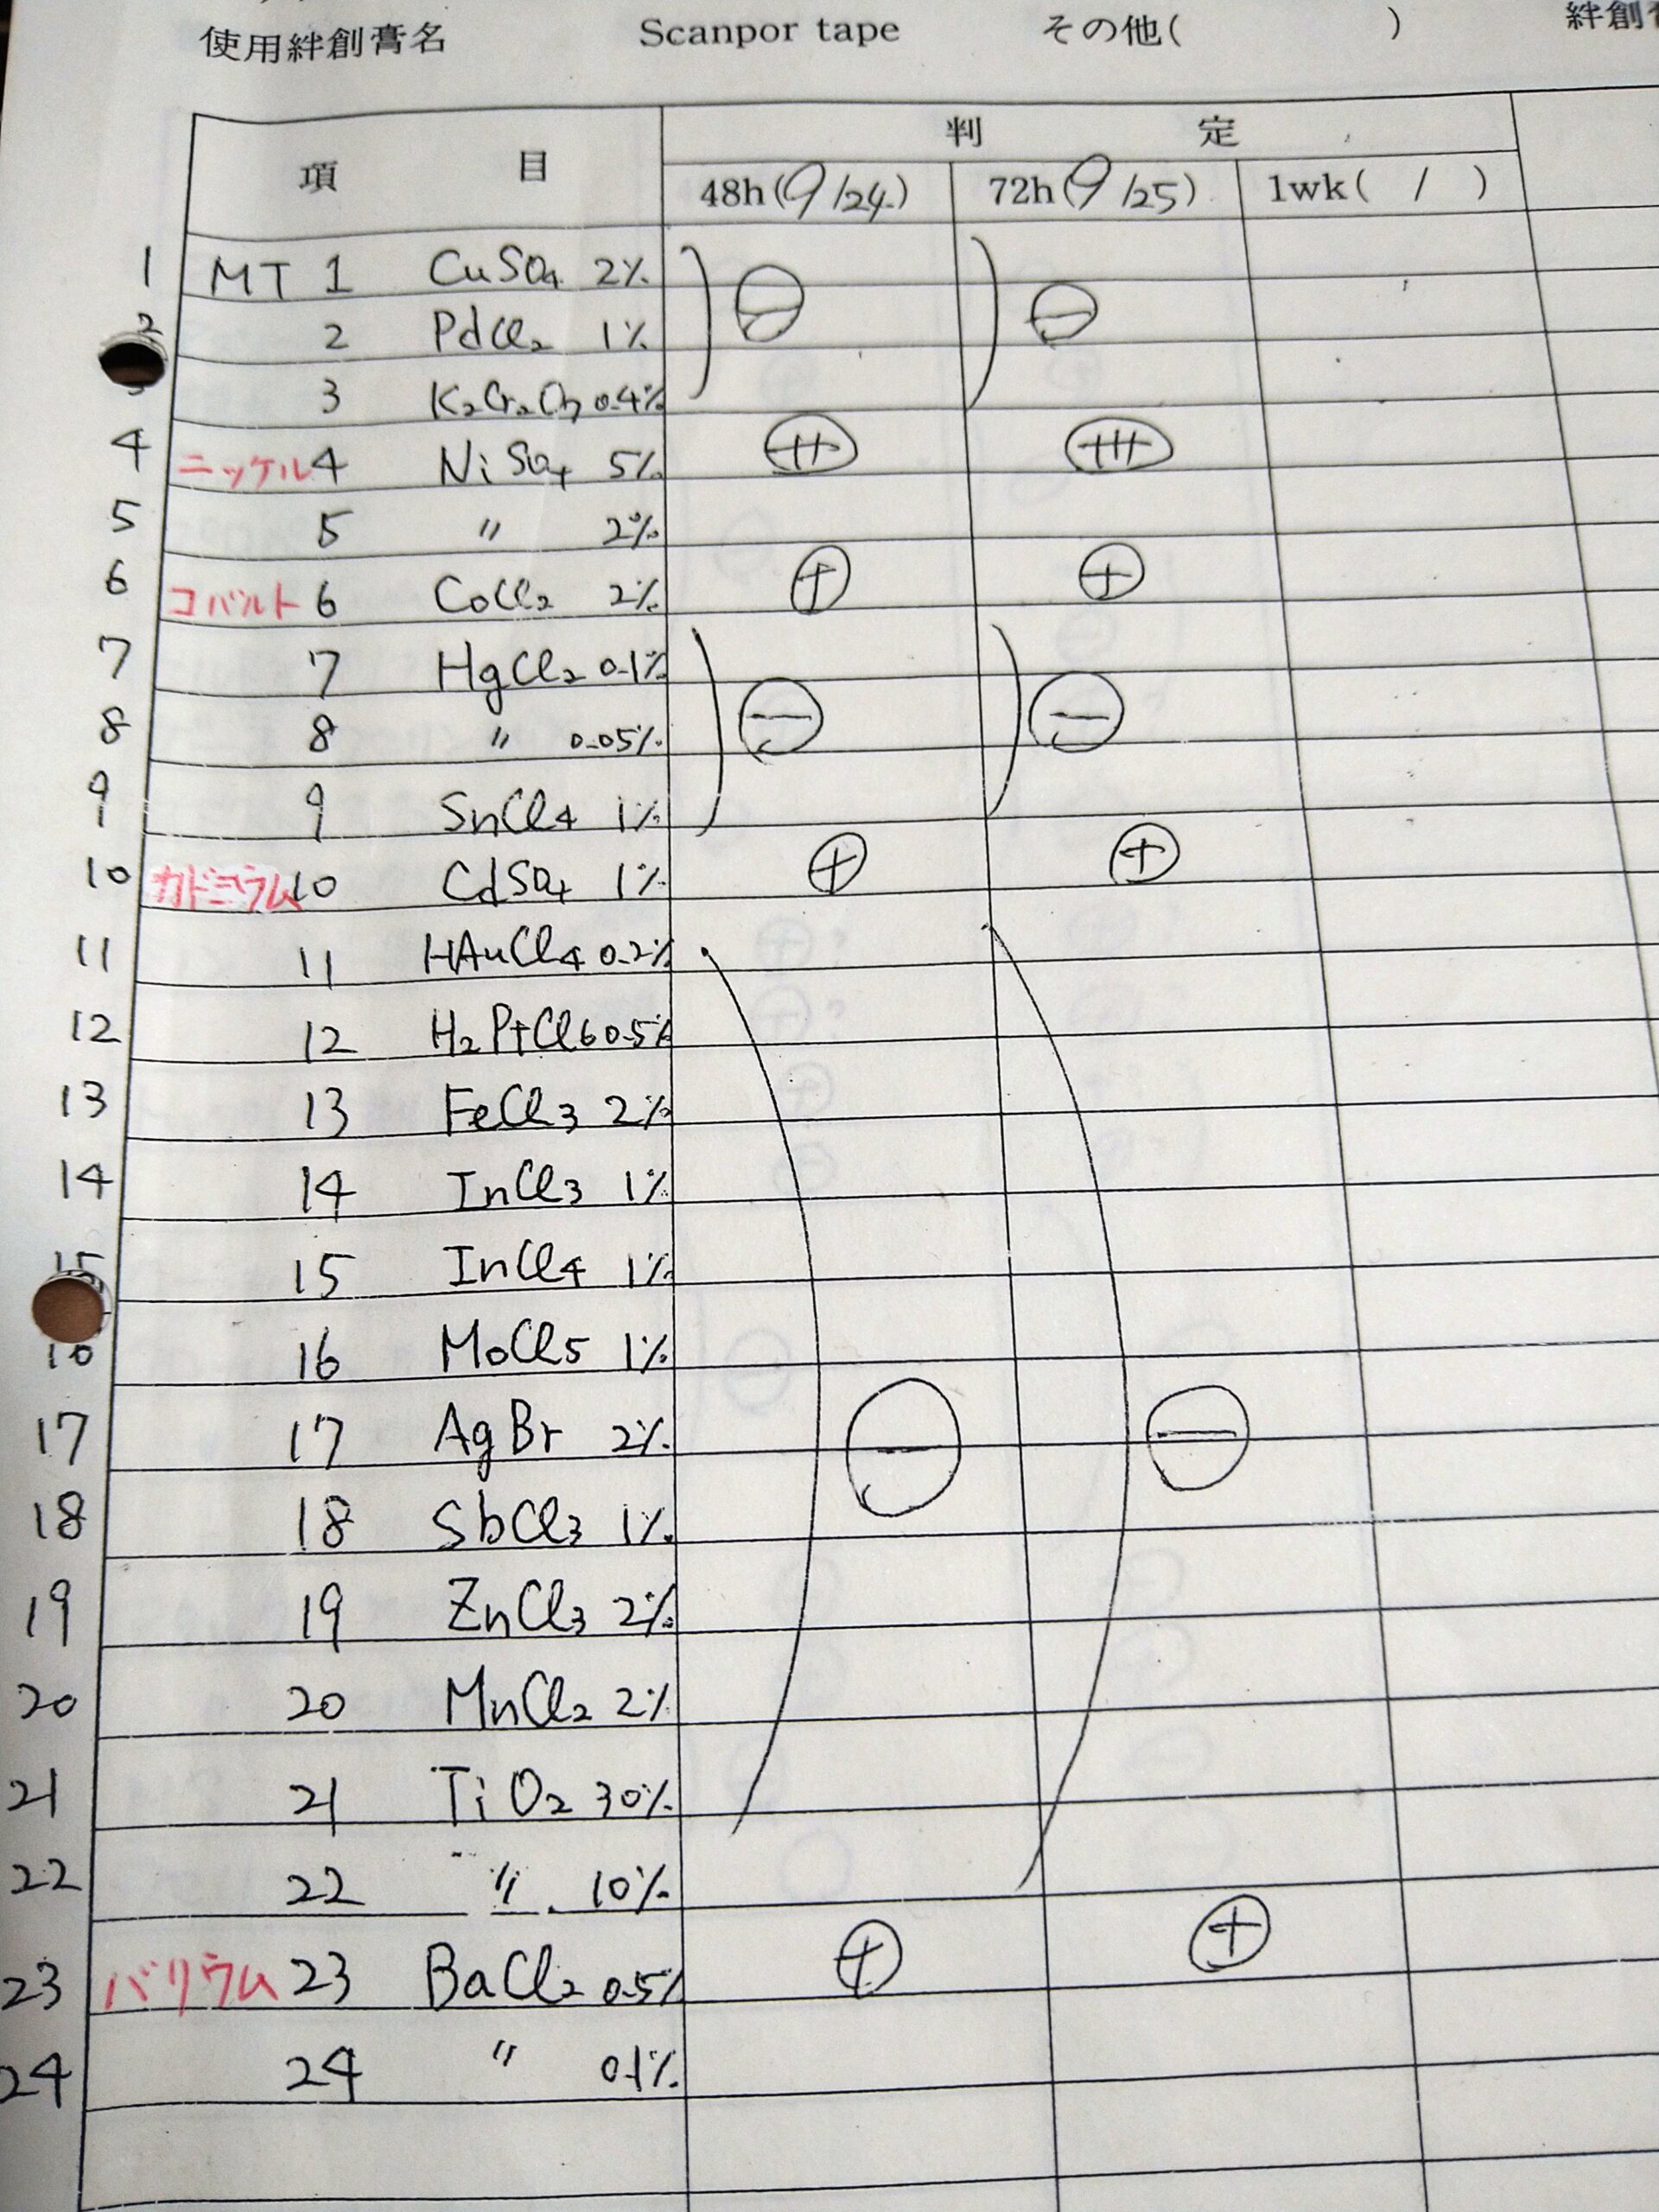 使用絆創膏名 Scanpor tape その他( ) 絆創
項 目 判 定
48h(9/24) 72h(9/25) 1wk( / )
1 MT 1 CuSO4 2% ⊖ ⊖
2 2 PdCl2 1%
3 3 K2Cr2O7 0.4%
4 ニッケル 4 NiSO4 5% ++ +++
5 5 〃 2%
6 コバルト 6 CoCl2 2% ⊕ ⊕
7 7 HgCl2 0.1%
8 8 〃 0.05% ⊖ ⊖
9 9 SnCl4 1%
10 カドミウム 10 CdSO4 1% ⊕ ⊕
11 11 HAuCl4 0.2%
12 12 H2PtCl6 0.5%
13 13 FeCl3 2%
14 14 InCl3 1%
15 15 InCl4 1%
16 16 MoCl5 1%
17 17 AgBr 2% ⊖ ⊖
18 18 SbCl3 1%
19 19 ZnCl3 2%
20 20 MnCl2 2%
21 21 TiO2 30%
22 22 〃 10%
23 バリウム 23 BaCl2 0.5% ⊕ ⊕
24 24 〃 0.1%